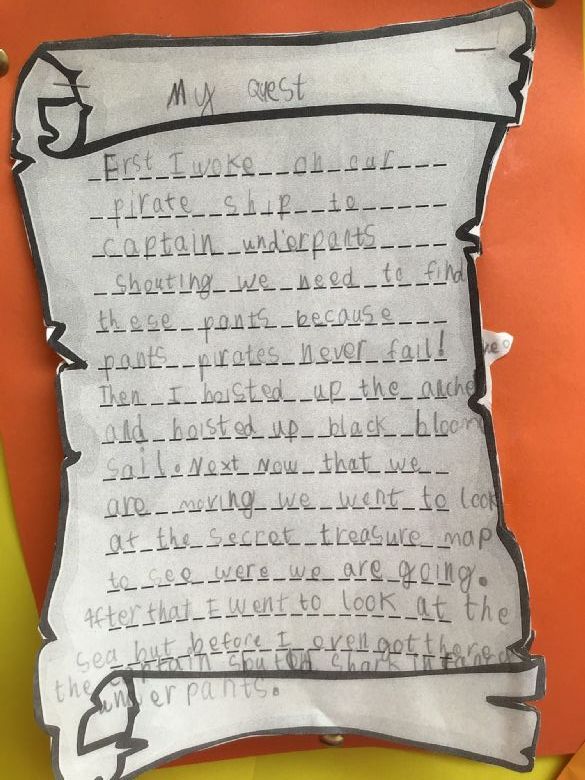 My Quest
First I woke on our
pirate ship to
captain underpants
shouting we need to find
these pants because
pants pirates never fail!
Then I hoisted up the anche
and hoisted up black bloom
sail. Next Now that we
are moving we went to look
at the secret treasure map
to see were we are going.
After that I went to look at the
sea but before I even got there
the captain shark
underpants.